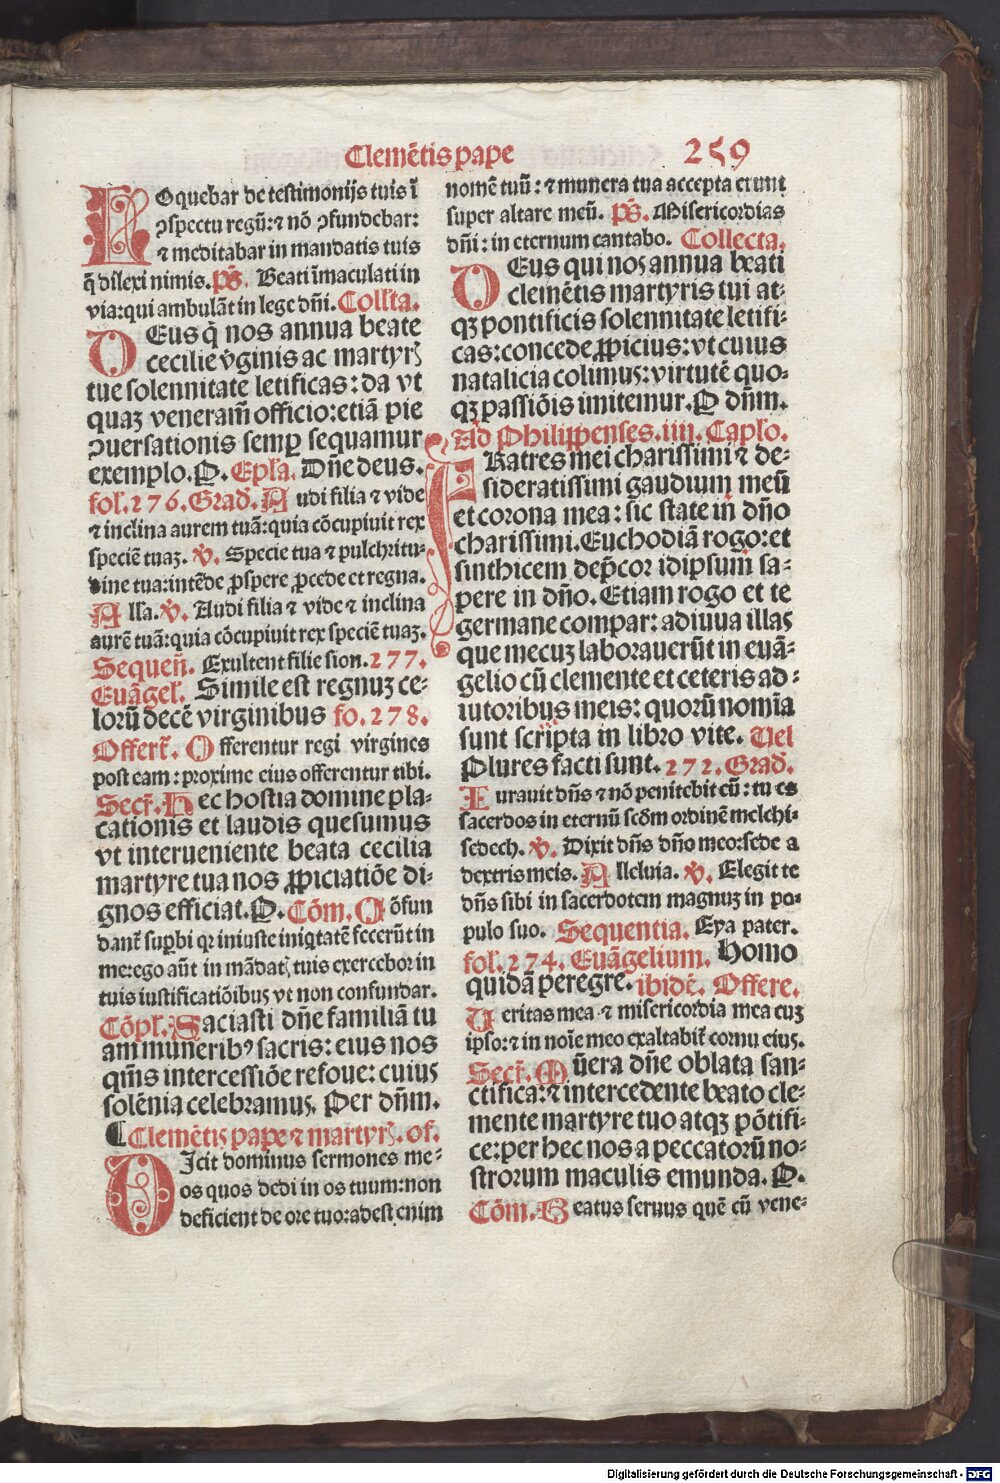 Clemētis pape 259
LOquebar de testimonijs tuis ī
ↄspectu regū: ⁊ nō ↄfundebar:
⁊ meditabar in mandatis tuis
q̄ dilexi nimis. p̄s. Beati īmaculati in
via: qui ambulāt in lege dn̄i. Coll'ta.
DEus q̄ nos annua beate
cecilie v̄ginis ac martyrꝭ
tue solennitate letificas: da vt
quaꝫ veneram̄ officio: etiā pie
ↄuersationis semꝑ sequamur
exemplo. P. Epl'a. Dn̄e deus.
fol'. 276. Grad'. Audi filia ⁊ vide
⁊ inclina aurem tuā: quia cōcupiuit rex
speciē tuaꝫ. v̄. Specie tua ⁊ pulchritu-
dine tua: intēde ꝓspere ꝓcede et regna.
Alla. v̄. Audi filia ⁊ vide ⁊ inclina
aurē tuā: quia cōcupiuit rex speciē tuaꝫ.
Sequen̄. Exultent filie sion. 277.
Euāgel'. Simile est regnuꝫ ce-
lorū decē virginibus fo. 278.
Offert̄. Offerentur regi virgines
post eam: proxime eius offerentur tibi.
Secr̄. Hec hostia domine pla-
cationis et laudis quesumus
vt interueniente beata cecilia
martyre tua nos ꝓpiciatiōe di-
gnos efficiat. P. Cōm. Cōfun
dant̄ suꝑbi qꝛ iniuste iniqtatē fecerūt in
me: ego aūt in mādatꝭ tuis exercebor in
tuis iustificatiōibus vt non confundar.
Cōpl'. Saciasti dn̄e familiā tu
am muneribꝰ sacris: eius nos
qm̄s intercessiōe refoue: cuius
solēnia celebramus. Per dn̄m.
¶Clemētis pape ⁊ martyrꝭ. of.
DIcit dominus sermones me-
os quos dedi in os tuum: non
deficient de ore tuo: adest enim
nomē tuū: ⁊ munera tua accepta erunt
super altare meū. p̄s. Misericordias
dn̄i: in eternum cantabo. Collecta.
DEus qui nos annua beati
clemētis martyris tui at-
qꝫ pontificis solennitate letifi-
cas: concede ꝓpicius: vt cuius
natalicia colimus: virtutē quo-
qꝫ passiōis imitemur. P dn̄m.
Ad Philippenses. iiij. Capl'o.
FRatres mei charissimi ⁊ de-
sideratissimi gaudium meū
et corona mea: sic state in dn̄o
charissimi. Euchodiā rogo: et
sinthicem dep̄cor idipsum sa-
pere in dn̄o. Etiam rogo et te
germane compar: adiuua illas
que mecuꝫ laborauerūt in euā-
gelio cū clemente et ceteris ad-
iutoribus meis: quorū nomīa
sunt scripta in libro vite. Uel
Plures facti sunt. 272. Grad'.
Iurauit dn̄s ⁊ nō penitebit eū: tu es
sacerdos in eternū scd̄m ordinē melchi-
sedech. v̄. Dixit dn̄s dn̄o meo: sede a
dextris meis. Alleluia. v̄. Elegit te
dn̄s sibi in sacerdotem magnuꝫ in po-
pulo suo. Sequentia. Eya pater.
fol. 274. Euāgelium. Homo
quidā peregre. ibidē. Offere.
Ueritas mea ⁊ misericordia mea cuꝫ
ipso: ⁊ in noīe meo exaltabit̄ cornu eius.
Secr̄. Mūera dn̄e oblata san-
ctifica: ⁊ intercedente beato cle-
mente martyre tuo atqꝫ pōtifi-
ce: per hec nos a peccatorū no-
strorum maculis emunda. P.
Cōm. Beatus seruus quē cū vene-
Digitalisierung gefördert durch die Deutsche Forschungsgemeinschaft - DFG